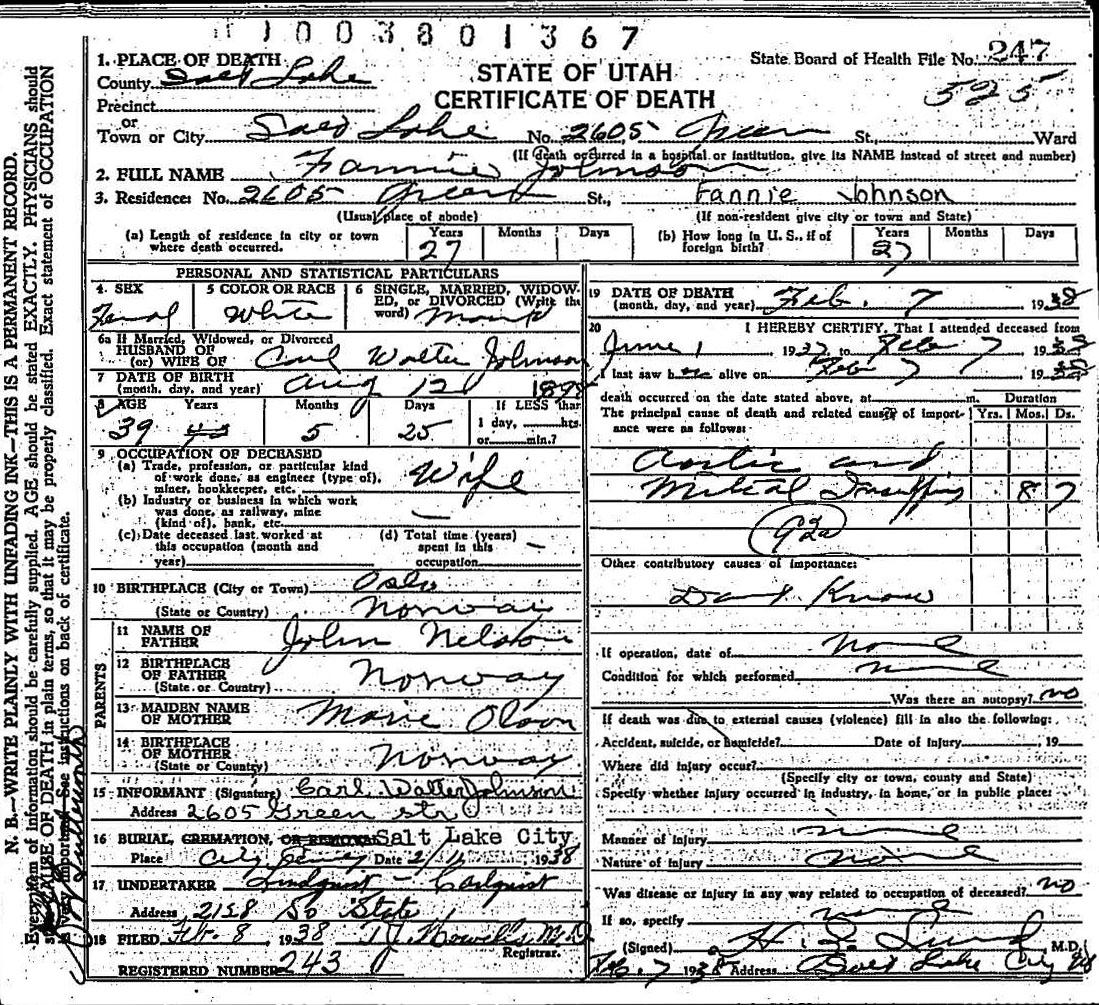 1003801367
1. PLACE OF DEATH
State Board of Health File No. 247
County Salt Lake
STATE OF UTAH
525
Precinct
CERTIFICATE OF DEATH
or
Town or City Salt Lake No. 2605 Green St., Ward
(If death occurred in a hospital or institution, give its NAME instead of street and number)
2. FULL NAME Fannie Johnson
3. Residence: No. 2605 Green St., Fannie Johnson
(Usual place of abode) (If non-resident give city or town and State)
(a) Length of residence in city or town where death occurred. Years 27 Months Days
(b) How long in U. S., if of foreign birth? Years 27 Months Days
PERSONAL AND STATISTICAL PARTICULARS
4. SEX Femal
5 COLOR OR RACE White
6 SINGLE, MARRIED, WIDOWED, or DIVORCED (Write the word)
6a If Married, Widowed, or Divorced
HUSBAND OF
(or) WIFE OF Carl Walter Johnson
7 DATE OF BIRTH
(month, day, and year) Aug 12 1898
8 AGE Years 39 Months 5 Days 25
If LESS than 1 day, hrs. or min.?
9 OCCUPATION OF DECEASED
(a) Trade, profession, or particular kind
of work done, as engineer (type of),
miner, bookkeeper, etc. Wife
(b) Industry or business in which work
was done, as railway, mine
(kind of), bank, etc. —
(c) Date deceased last worked at
this occupation (month and
year)
(d) Total time (years)
spent in this
occupation —
10 BIRTHPLACE (City or Town) Oslo
(State or Country) Norway
PARENTS
11 NAME OF FATHER John Nelson
12 BIRTHPLACE OF FATHER
(State or Country) Norway
13 MAIDEN NAME OF MOTHER Marie Olson
14 BIRTHPLACE OF MOTHER
(State or Country) Norway
15 INFORMANT (Signature) Carl Walter Johnson
Address 2605 Green str
16 BURIAL, CREMATION, OR REMOVAL Salt Lake City
Place City Date 2/11 1938
17 UNDERTAKER Lindquist - Carlquist
Address 2128 So State
18 FILED Feb. 8, 1938 Howells M.D.
Registrar.
REGISTERED NUMBER 243
19 DATE OF DEATH
(month, day, and year) Feb. 7 1938
20 I HEREBY CERTIFY, That I attended deceased from
June 1 1937 to Feb 7 1938
I last saw h alive on Feb 7 1938
death occurred on the date stated above, at m.
Duration
The principal cause of death and related causes of importance were as follows: Yrs. Mos. Ds.
Aortic and
Mitral 8 7
92a
Other contributory causes of importance:
Dont Know
If operation, date of none
Condition for which performed
Was there an autopsy? no
If death was due to external causes (violence) fill in also the following:
Accident, suicide, or homicide? Date of injury , 19
Where did injury occur?
(Specify city or town, county and State)
Specify whether injury occurred in industry, in home, or in public place:
Manner of injury
Nature of injury none
Was disease or injury in any way related to occupation of deceased? no
If so, specify
(Signed) H. Lund M.D.
Feb. 7 1938 Address Salt Lake City
N. B.—WRITE PLAINLY WITH UNFADING INK—THIS IS A PERMANENT RECORD.
Every item of information should be carefully supplied. AGE should be stated EXACTLY. PHYSICIANS should
state CAUSE OF DEATH in plain terms, so that it may be properly classified. Exact statement of OCCUPATION
very important. See instructions on back of certificate.